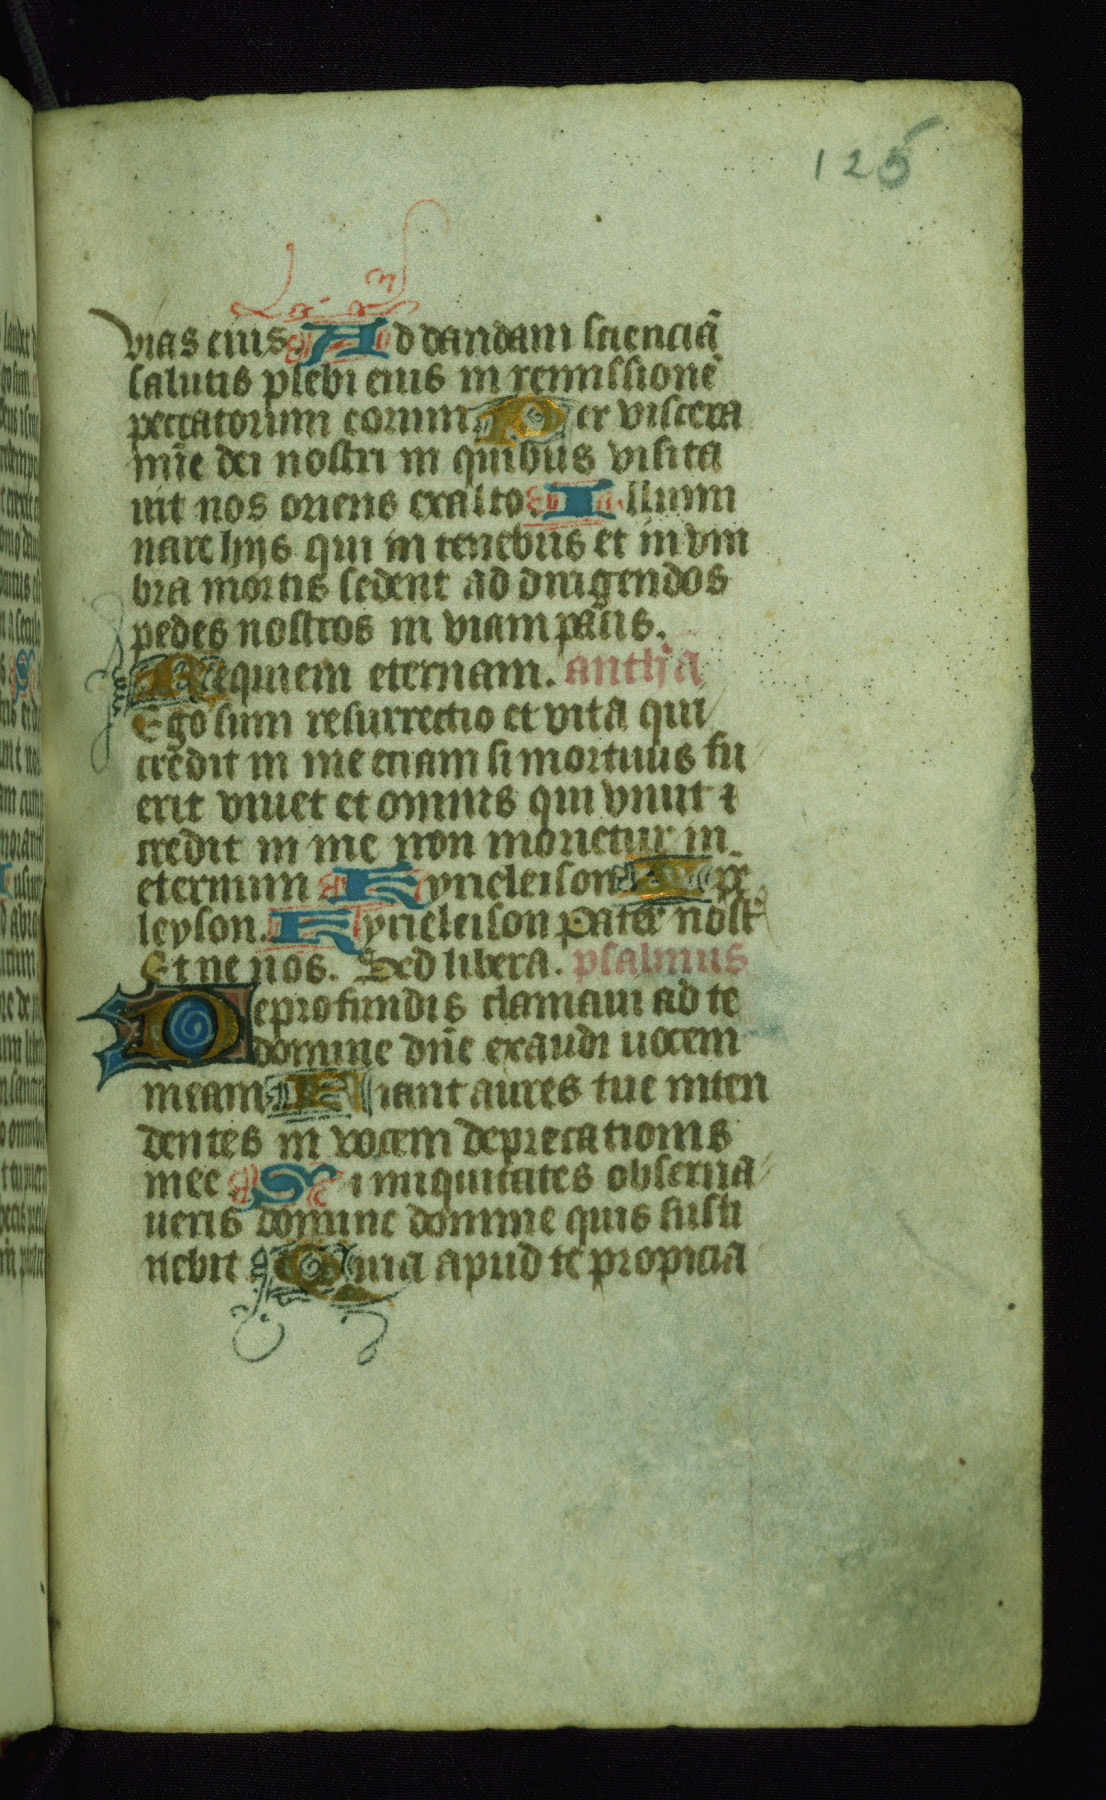 125
vias eius Ad dandam scienciā
salutis plebi eius in remissionē
peccatorum eorum Per viscera
mīe dei nostri in quibus visita
uit nos oriens exalto Illumi
nare hijs qui in tenebris et in vm
bra mortis sedent ad dirigendos
pedes nostros in viam pacis.
Requiem eternam. anth'a
Ego sum resurrectio et vita qui
credit in me etiam si mortuus fu
erit viuet et omnis qui viuit ⁊
credit in me non morietur in
eternum Kyrieleison Xpe
leyson. Kyrieleison Pater nost'
Et ne nos. Sed libera. psalmus
De profundis clamaui ad te
domine dn̄e exaudi uocem
meam Fiant aures tue inten
dentes in vocem deprecationis
mee Si iniquitates obserua
ueris domine domine quis susti
nebit Quia apud te propicia